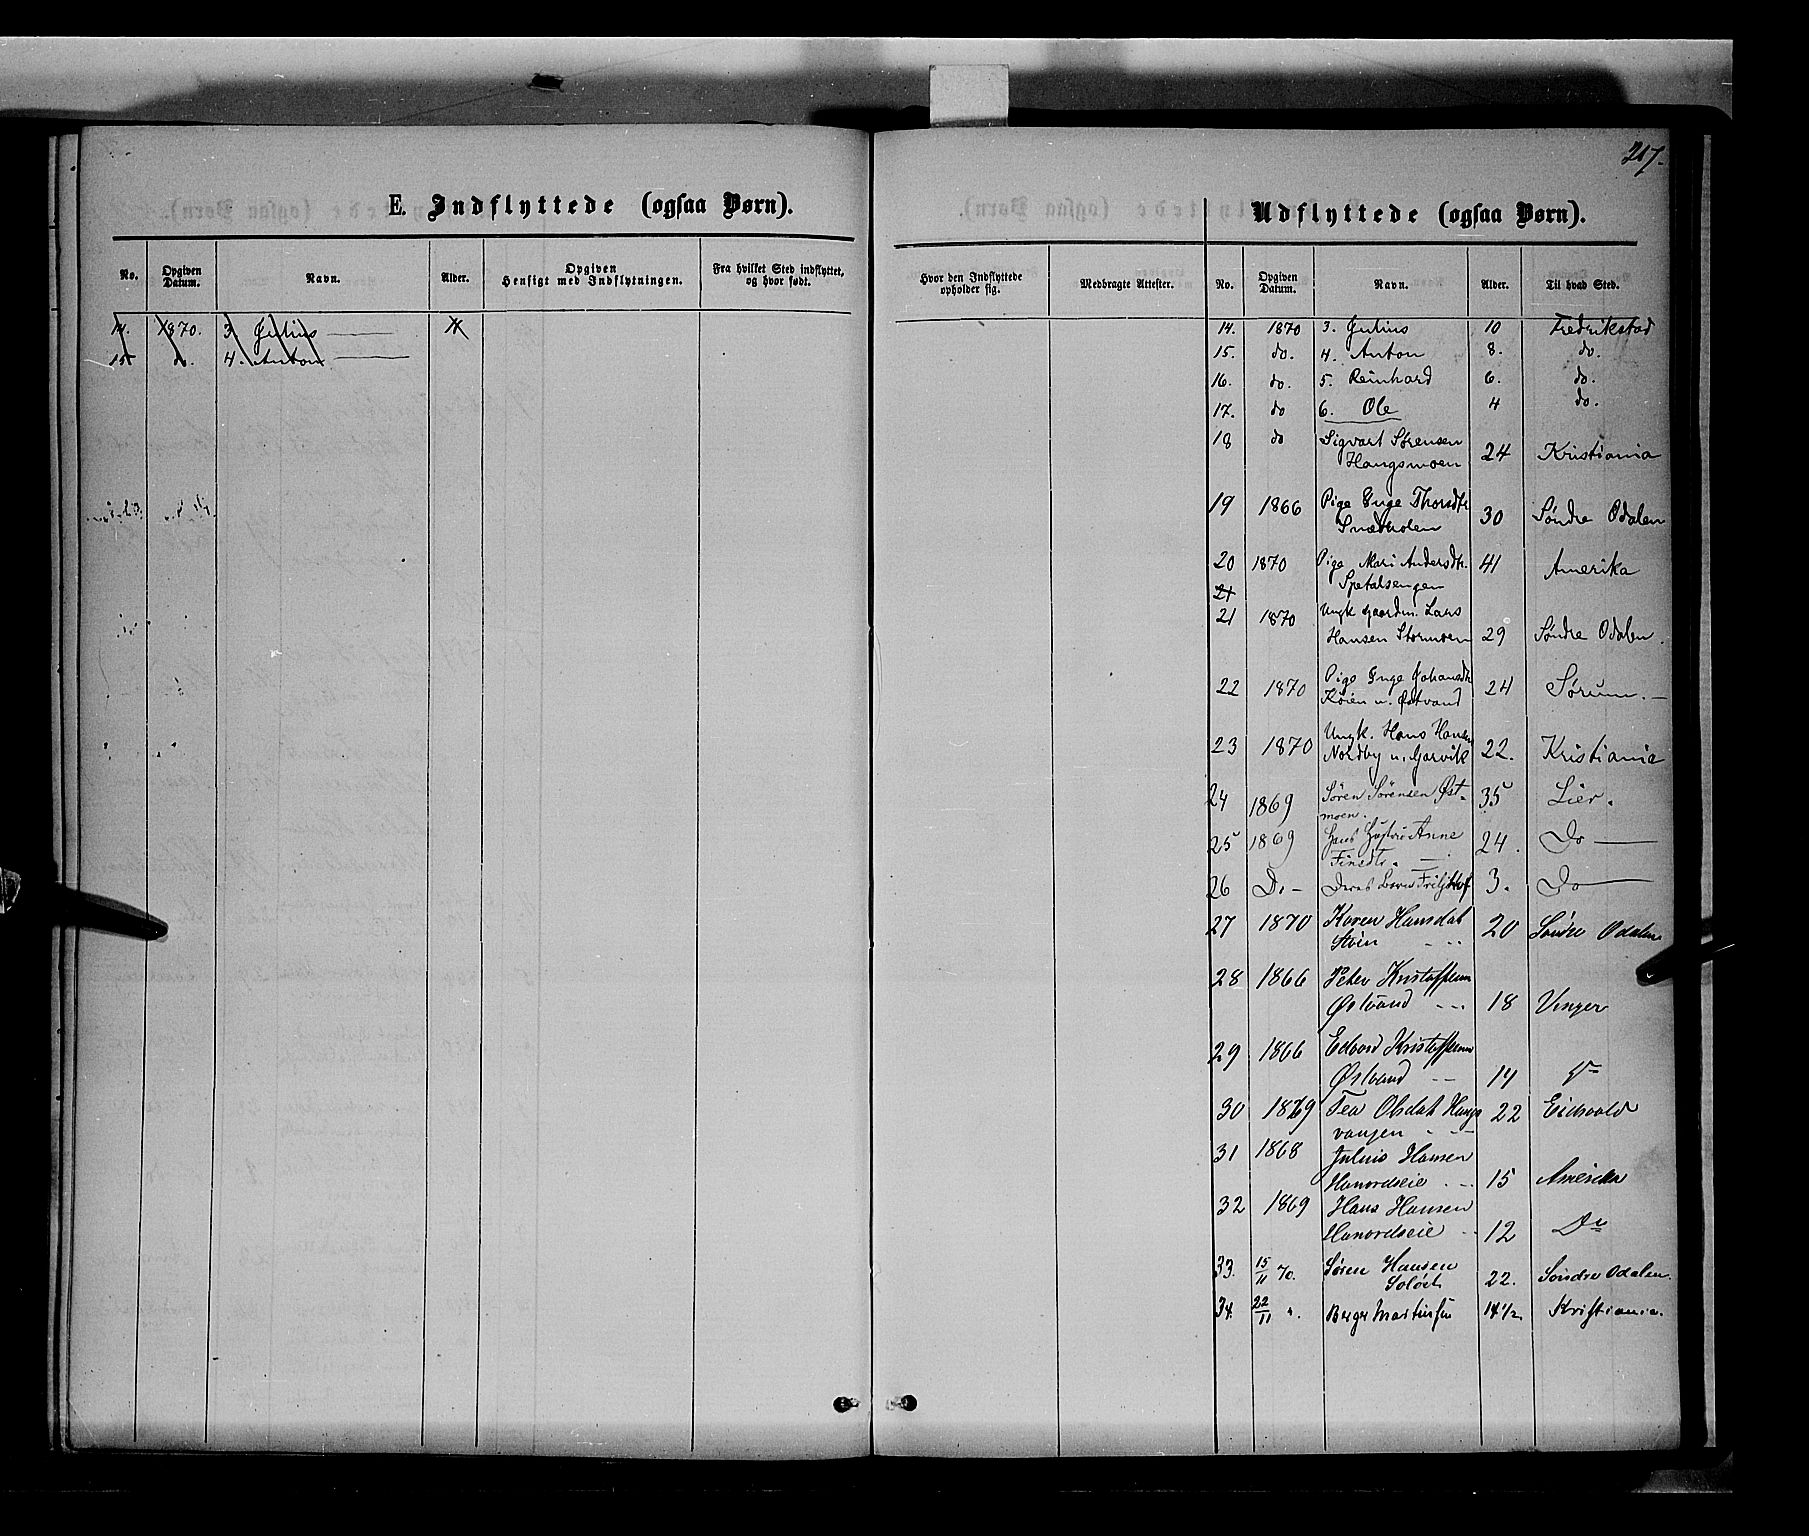 217.
E. Indflyttede (ogsaa Børn).
Udflyttede (ogsaa Børn).
No. Opgiven Datum. Navn. Alder. Opgiven Hensigt med Indflytningen. Fra hvilket Sted indflyttet, og hvor født.
Hvor den Indflyttede opholder sig. Medbragte Attester. No. Opgiven Datum. Navn. Alder. Til hvad Sted.
14. 1870. 3 Julius
15 do. 4. Anton
14. 1870 3. Julius 10 Fredrikstad
15. do. 4. Anton 8. do.
16. do. 5. Reinhard 6. do.
17. do 6. Ole 4 do.
18 do Sigvart Sørensen
Haugsmoen 24 Kristiania
19 1866 Pige Inge Thorsdtr
30 Søndre Odalen
20 1870 Pige Mari Andersdtr. 41 Amerika
Spetalsengen
21
21 1870 Ungk gaardm. Lars
Hansen Stormoen 29 Søndre Odalen.
22 1870 Pige Inge Johansdtr 24 Sørum.—
Køien u. Østvand
23 1870 Ungk. Hans Hansen
Nordby u. Garvik 22. Kristiania
24 1869 Søren Sørensen Øst- 35 Lier.
moen.
25 1869 Hans Hustru Anne 24. Do —
Finsdtr. —
26 Do — Deres Barn Fritjhof 3. Do —
27 1870 Karen Hansdat 20 Søndre Odalen
Støen
28 1866 Peter Kristoffersen
Østvand 18 Vinger
29 1866 Edvard Kristoffersen
Østvand 14
30 1869 Tea Olsdat Haugs 22 Eidsvold
vangen
31 1868 Julius Hansen
Hanordseie 15 Amerika
32 1869 Hans Hansen
Hanordseie 12 Do
33. 15/11 70. Søren Hansen
Soløst 22. Søndre Odalen.
34. 22/11 ". Berger Martinsen 14 1/2 Kristiania.